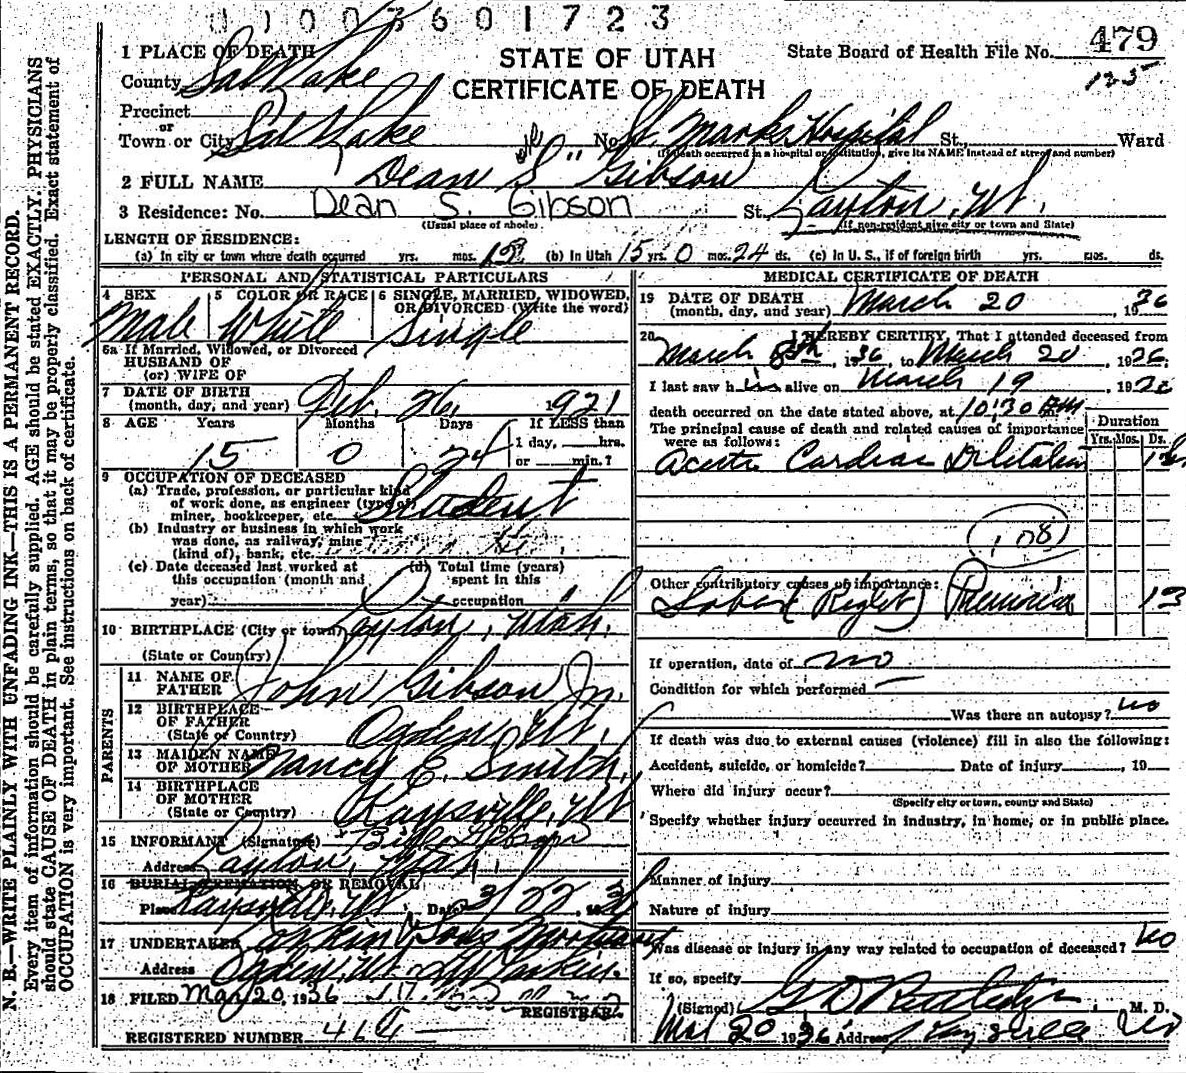 1003601723
1 PLACE OF DEATH
STATE OF UTAH
CERTIFICATE OF DEATH
State Board of Health File No. 479
125
County Salt Lake
Precinct
or
Town or City Salt Lake No. St. Marks Hospital St., Ward
(If death occurred in a hospital or institution, give its NAME instead of street and number)
2 FULL NAME Dean S. Gibson
3 Residence: No. Dean S. Gibson St., Layton, Ut.
(Usual place of abode) (If non-resident give city or town and State)
LENGTH OF RESIDENCE:
(a) In city or town where death occurred yrs. mos. ds. (b) In Utah 15 yrs. 0 mos. 24 ds. (c) In U.S., if of foreign birth yrs. mos. ds.
PERSONAL AND STATISTICAL PARTICULARS
4 SEX Male
5 COLOR OR RACE White
6 SINGLE, MARRIED, WIDOWED, OR DIVORCED (Write the word) Single
6a If Married, Widowed, or Divorced
HUSBAND OF
(or) WIFE OF
7 DATE OF BIRTH
(month, day, and year) Feb. 26, 1921
8 AGE Years 15 Months 0 Days 24
If LESS than
1 day, hrs.
or min.?
9 OCCUPATION OF DECEASED
(a) Trade, profession, or particular kind
of work done, as engineer (type of)
miner, bookkeeper, etc. Student
(b) Industry or business in which work
was done, as railway, mine
(kind of), bank, etc.
(c) Date deceased last worked at
this occupation (month and
year)
(d) Total time (years)
spent in this
occupation
10 BIRTHPLACE (City or town) Layton, Utah.
(State or Country)
PARENTS
11 NAME OF
FATHER John Gibson Jr.
12 BIRTHPLACE
OF FATHER
(State or Country) Ogden, Ut.
13 MAIDEN NAME
OF MOTHER Nancy E. Smith.
14 BIRTHPLACE
OF MOTHER
(State or Country) Kaysville, Ut
15 INFORMANT (Signature) Gibson
Address Layton, Utah.
16 BURIAL, CREMATION, OR REMOVAL
Place Kaysville, Ut. Date 3/22, 1936
17 UNDERTAKER Larkin & Sons Mortuary
Address Ogden, Ut.
18 FILED Mar 20, 1936
REGISTRAR
REGISTERED NUMBER 464
MEDICAL CERTIFICATE OF DEATH
19 DATE OF DEATH
(month, day, and year) March 20, 1936
20 I HEREBY CERTIFY, That I attended deceased from
March 8th, 1936, to March 20, 1936.
I last saw him alive on March 19, 1936
death occurred on the date stated above, at 10:30
The principal cause of death and related causes of importance
were as follows:
Duration
Yrs. Mos. Ds.
Acute Cardiac Dilatation
108
Other contributory causes of importance:
Lobar (Right) Pneumonia 13
If operation, date of no
Condition for which performed
Was there an autopsy? no
If death was due to external causes (violence) fill in also the following:
Accident, suicide, or homicide? Date of injury , 19
Where did injury occur?
(Specify city or town, county and State)
Specify whether injury occurred in industry, in home, or in public place.
Manner of injury
Nature of injury
Was disease or injury in any way related to occupation of deceased? No
If so, specify
(Signed) M. D.
Mar 20 1936 Address Kaysville Ut
N. B.—WRITE PLAINLY WITH UNFADING INK—THIS IS A PERMANENT RECORD.
Every item of information should be carefully supplied. AGE should be stated EXACTLY. PHYSICIANS
should state CAUSE OF DEATH in plain terms, so that it may be properly classified. Exact statement of
OCCUPATION is very important. See instructions on back of certificate.